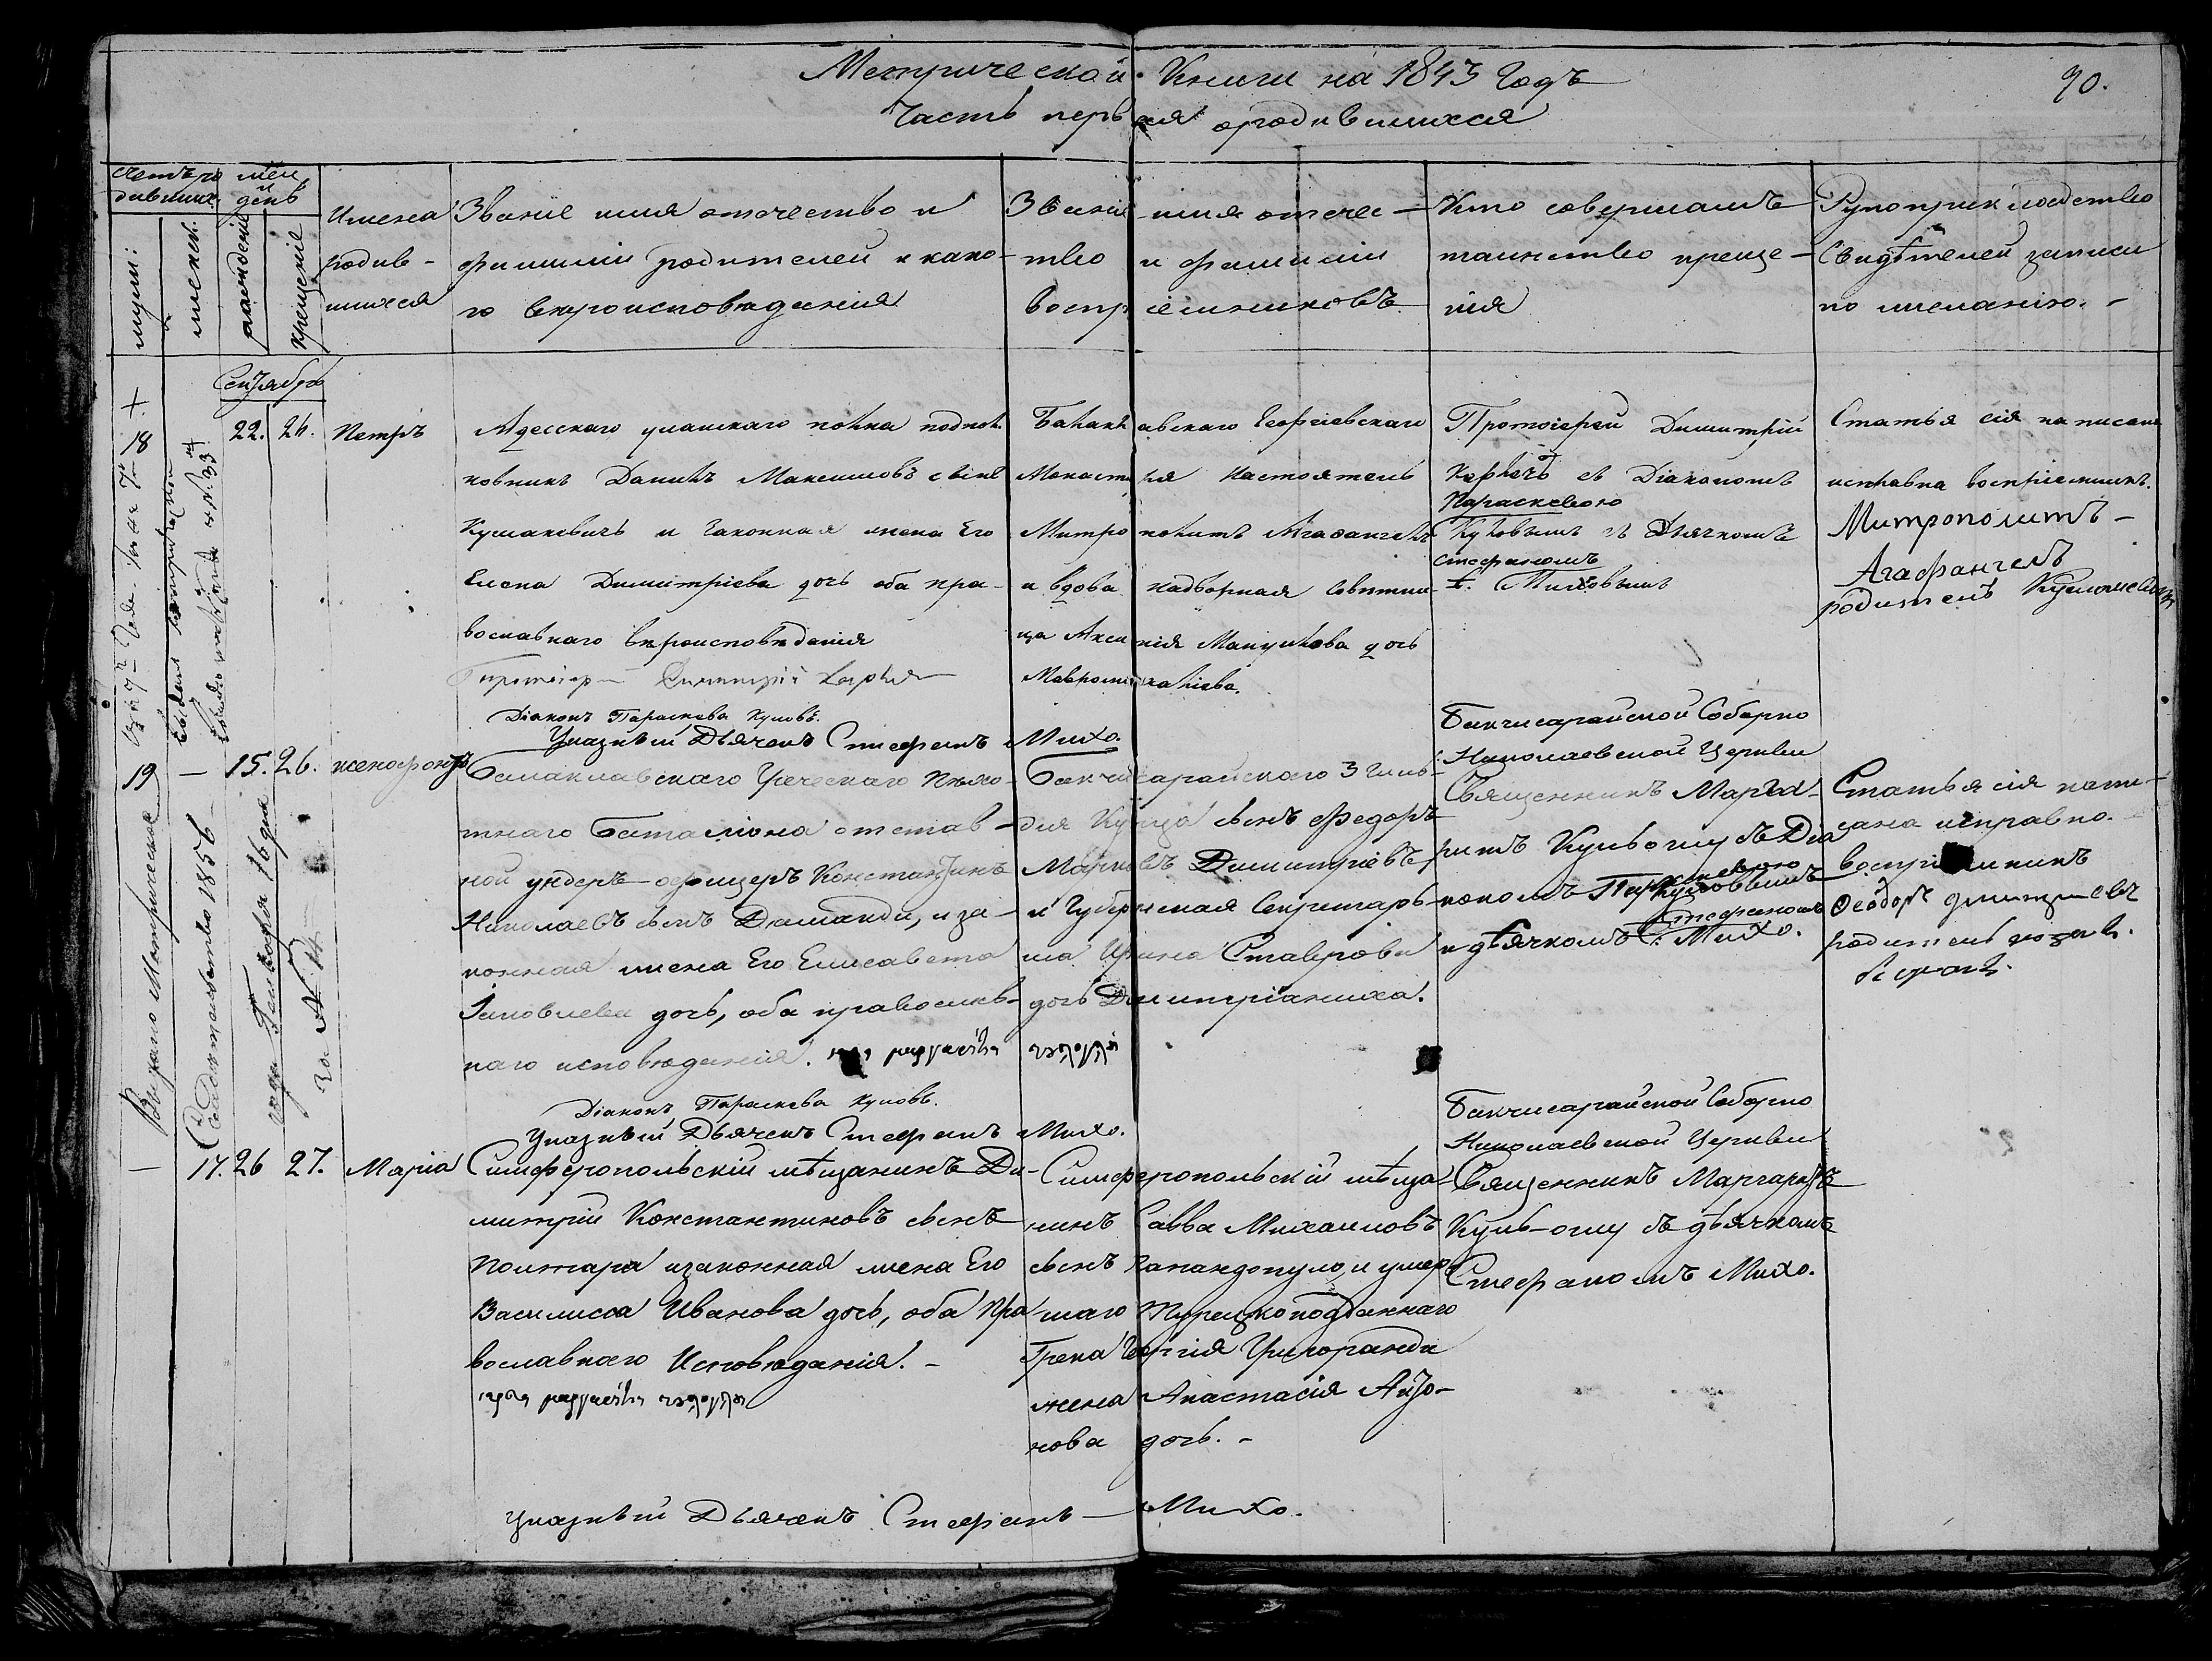 Метрической Книги на 1843 Годъ
90.
Часть первая ородившихся
Счетъ родившихся
Мѣс. и день
муж:
женск:
рожденіе
крещеніе
Имена
родив-
шихся
Званіе имя отечество и
фамиліи родителей и како-
го вѣроисповѣданія
Званіе имя отечес-
тво и фамиліи
воспріемниковъ
Кто совершалъ
таинство креще-
нія
Рукоприкладство
Свидѣтелей записи
по желанію. -
Сентября
18
22. 26.
Петръ
Адесскаго уланскаго полка подпол
ковникъ Данилъ Максимовъ сынъ
Кушакевичъ и законная жена Его
Елена Димитріева дочь оба пра-
вославнаго вѣроисповѣданія
Протоіер Димитрій
Діаконъ Параскева Куловъ.
Указный Дьячекъ Стефанъ Михо.
Балаклавскаго Георгіевскаго
Монастыря настоятель
Митрополитъ Агафангелъ
и вдова надворная совѣтни-
ца Аксинія Мануилова дочь
Мавромихаліева.
Протоіерей Димитрій
съ Діакономъ
Параскевою
Куловымъ и Дьячкомъ
Стефаномъ
Миховымъ
Статья сія написана
исправна воспріемникъ.
Митрополитъ -
Агафангелъ
родитель Кушакевичъ
19
— 15. 26.
Ксенофонтъ
Балаклавскаго Греческаго Пѣхо-
тнаго Баталіона отстав-
ной ундеръ-офицеръ Константинъ
Николаевъ сынъ Диаманди, и за-
конная жена Его Елисавета
Іаковлева дочь, оба православ-
наго исповѣданія.
Діаконъ Параскева Куловъ.
Указный Дьячекъ Стефанъ Михо.
Бахчисарайскаго 3 гиль-
діи Купца сынъ Федоръ
Марковъ Димитріевъ
и Губернская Секретарь-
ша Ирина Ставрова
дочь Димитріаниха.
Бахчисарайской Соборно
Николаевской Церкви
Священникъ Марга-
ритъ Куль-оглу съ Діа
кономъ Параскевою
Куловымъ
Стефаномъ
и дьячкомъ С: Михо.
Статья сія напи-
сана исправно.
воспріемникъ
Ѳеодоръ Димитріевъ
родитель
Выдано Метрическое
Свидетельство 1856
года Генваря 16 дня
за №
—
17. 26 27.
Марія
Симферопольскій мѣщанинъ Ди-
митрій Константиновъ сынъ
Политари и законная жена Его
Василиса Иванова дочь, оба Пра
вославнаго Исповѣданія. -
Симферопольскій мѣща-
нинъ Савва Михаиловъ
сынъ Капандопуло, и умер
шаго Турецкоподданнаго
Грека Георгія Григоранди
жена Анастасія Анто-
нова дочь. -
Бахчисарайской Соборно
Николаевской Церкви
Священникъ Маргаритъ
Куль-оглу съ дьячкомъ
Стефаномъ Михо.
Указный Дьячекъ Стефанъ — Михо.